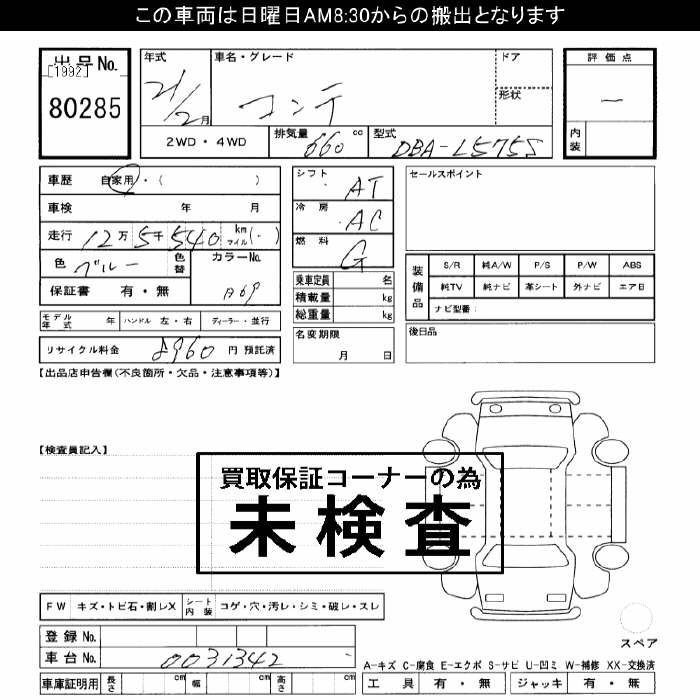 この車両は日曜日AM8:30からの搬出となります
出品No.
[1992]
80285
年式
21/2月
車名・グレード
コンテ
ドア
形状
2WD・4WD
排気量
660 cc
型式
DBA-L575S
評価点
ー
内装
車歴 自家用・( )
車検 年 月
走行 12万 5千 540 km マイル (・)
色 ブルー
色替
カラーNo.
保証書 有・無
B69
モデル年式 年 ハンドル 左・右 ディーラー・並行
リサイクル料金 8960 円 預託済
シフト
AT
冷房
AC
燃料
G
乗車定員 名
積載量 kg
総重量 kg
名変期限
月 日
セールスポイント
装備品
S/R 純A/W P/S P/W ABS
純TV 純ナビ 革シート 外ナビ エアB
ナビ型番:
後日品
【出品店申告欄(不良箇所・欠品・注意事項等)】
【検査員記入】
買取保証コーナーの為
未検査
FW キズ・トビ石・割レX
シート内装 コゲ・穴・汚レ・シミ・破レ・スレ
登録No.
車台No. 0031342
車庫証明用 長さ cm 幅 cm 高さ cm
スペア
A-キズ C-腐食 E-エクボ S-サビ U-凹ミ W-補修 XX-交換済
工具 有・無 ジャッキ 有・無